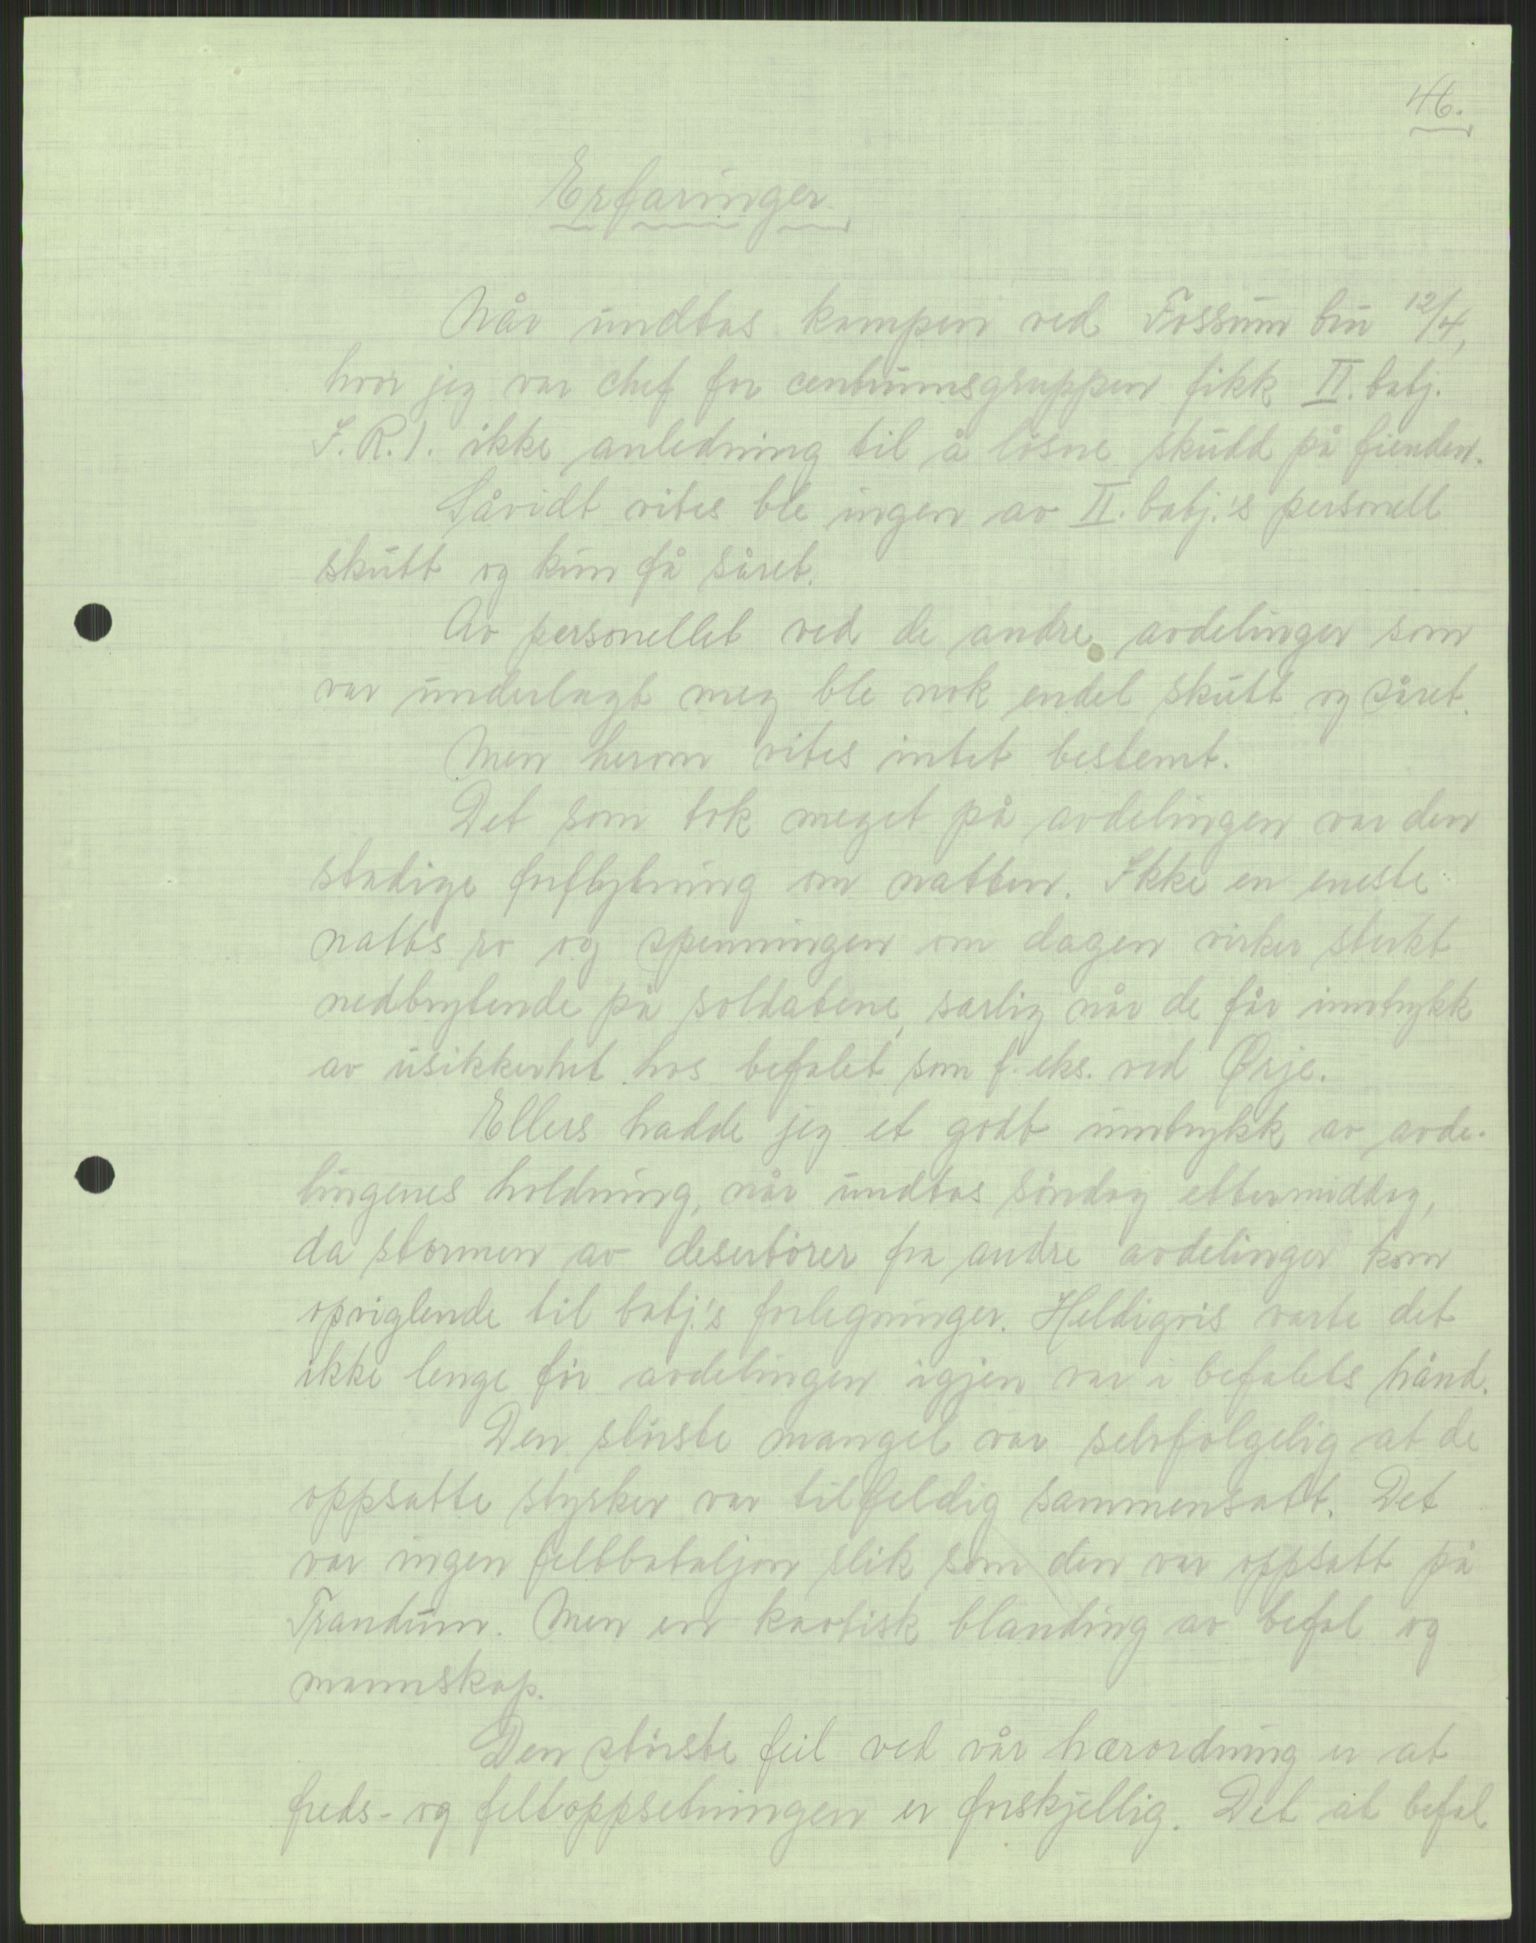 46.
Erfaringer.
Når undtas kampen ved Fossum bru 12/4,
hvor jeg var chef for centrumsgruppen fikk II. batj.
I.R.1. ikke anledning til å løsne skudd på fienden.
Såvidt vites ble ingen av II. batj.'s personell
skutt og kun få såret.
Av personellet ved de andre avdelinger som
var underlagt meg ble nok endel skutt og såret.
Men herom vites intet bestemt.
Det som tok meget på avdelingen var den
stadige forflytning om natten. Ikke en eneste
natts ro og spenningen om dagen virker sterkt
nedbrytende på soldatene, særlig når de får inntrykk
av usikkerhet hos befalet som f. eks. ved Ørje.
Ellers hadde jeg et godt inntrykk av avde-
lingenes holdning, når undtas søndag ettermiddag,
da stormen av desertører fra andre avdelinger kom
opviglende til batj.'s forlegninger. Heldigvis varte det
ikke lenge før avdelingen igjen var i befalets hånd.
Den største mangel var selvfølgelig at de
oppsatte styrker var tilfeldig sammensatt. Det
var ingen feltbataljon slik som den var oppsatt på
Trandum. Men en kaotisk blanding av befal og
mannskap.
Den største feil ved vår hærordning er at
freds- og feltoppsetningen er forskjellig. Det at befal